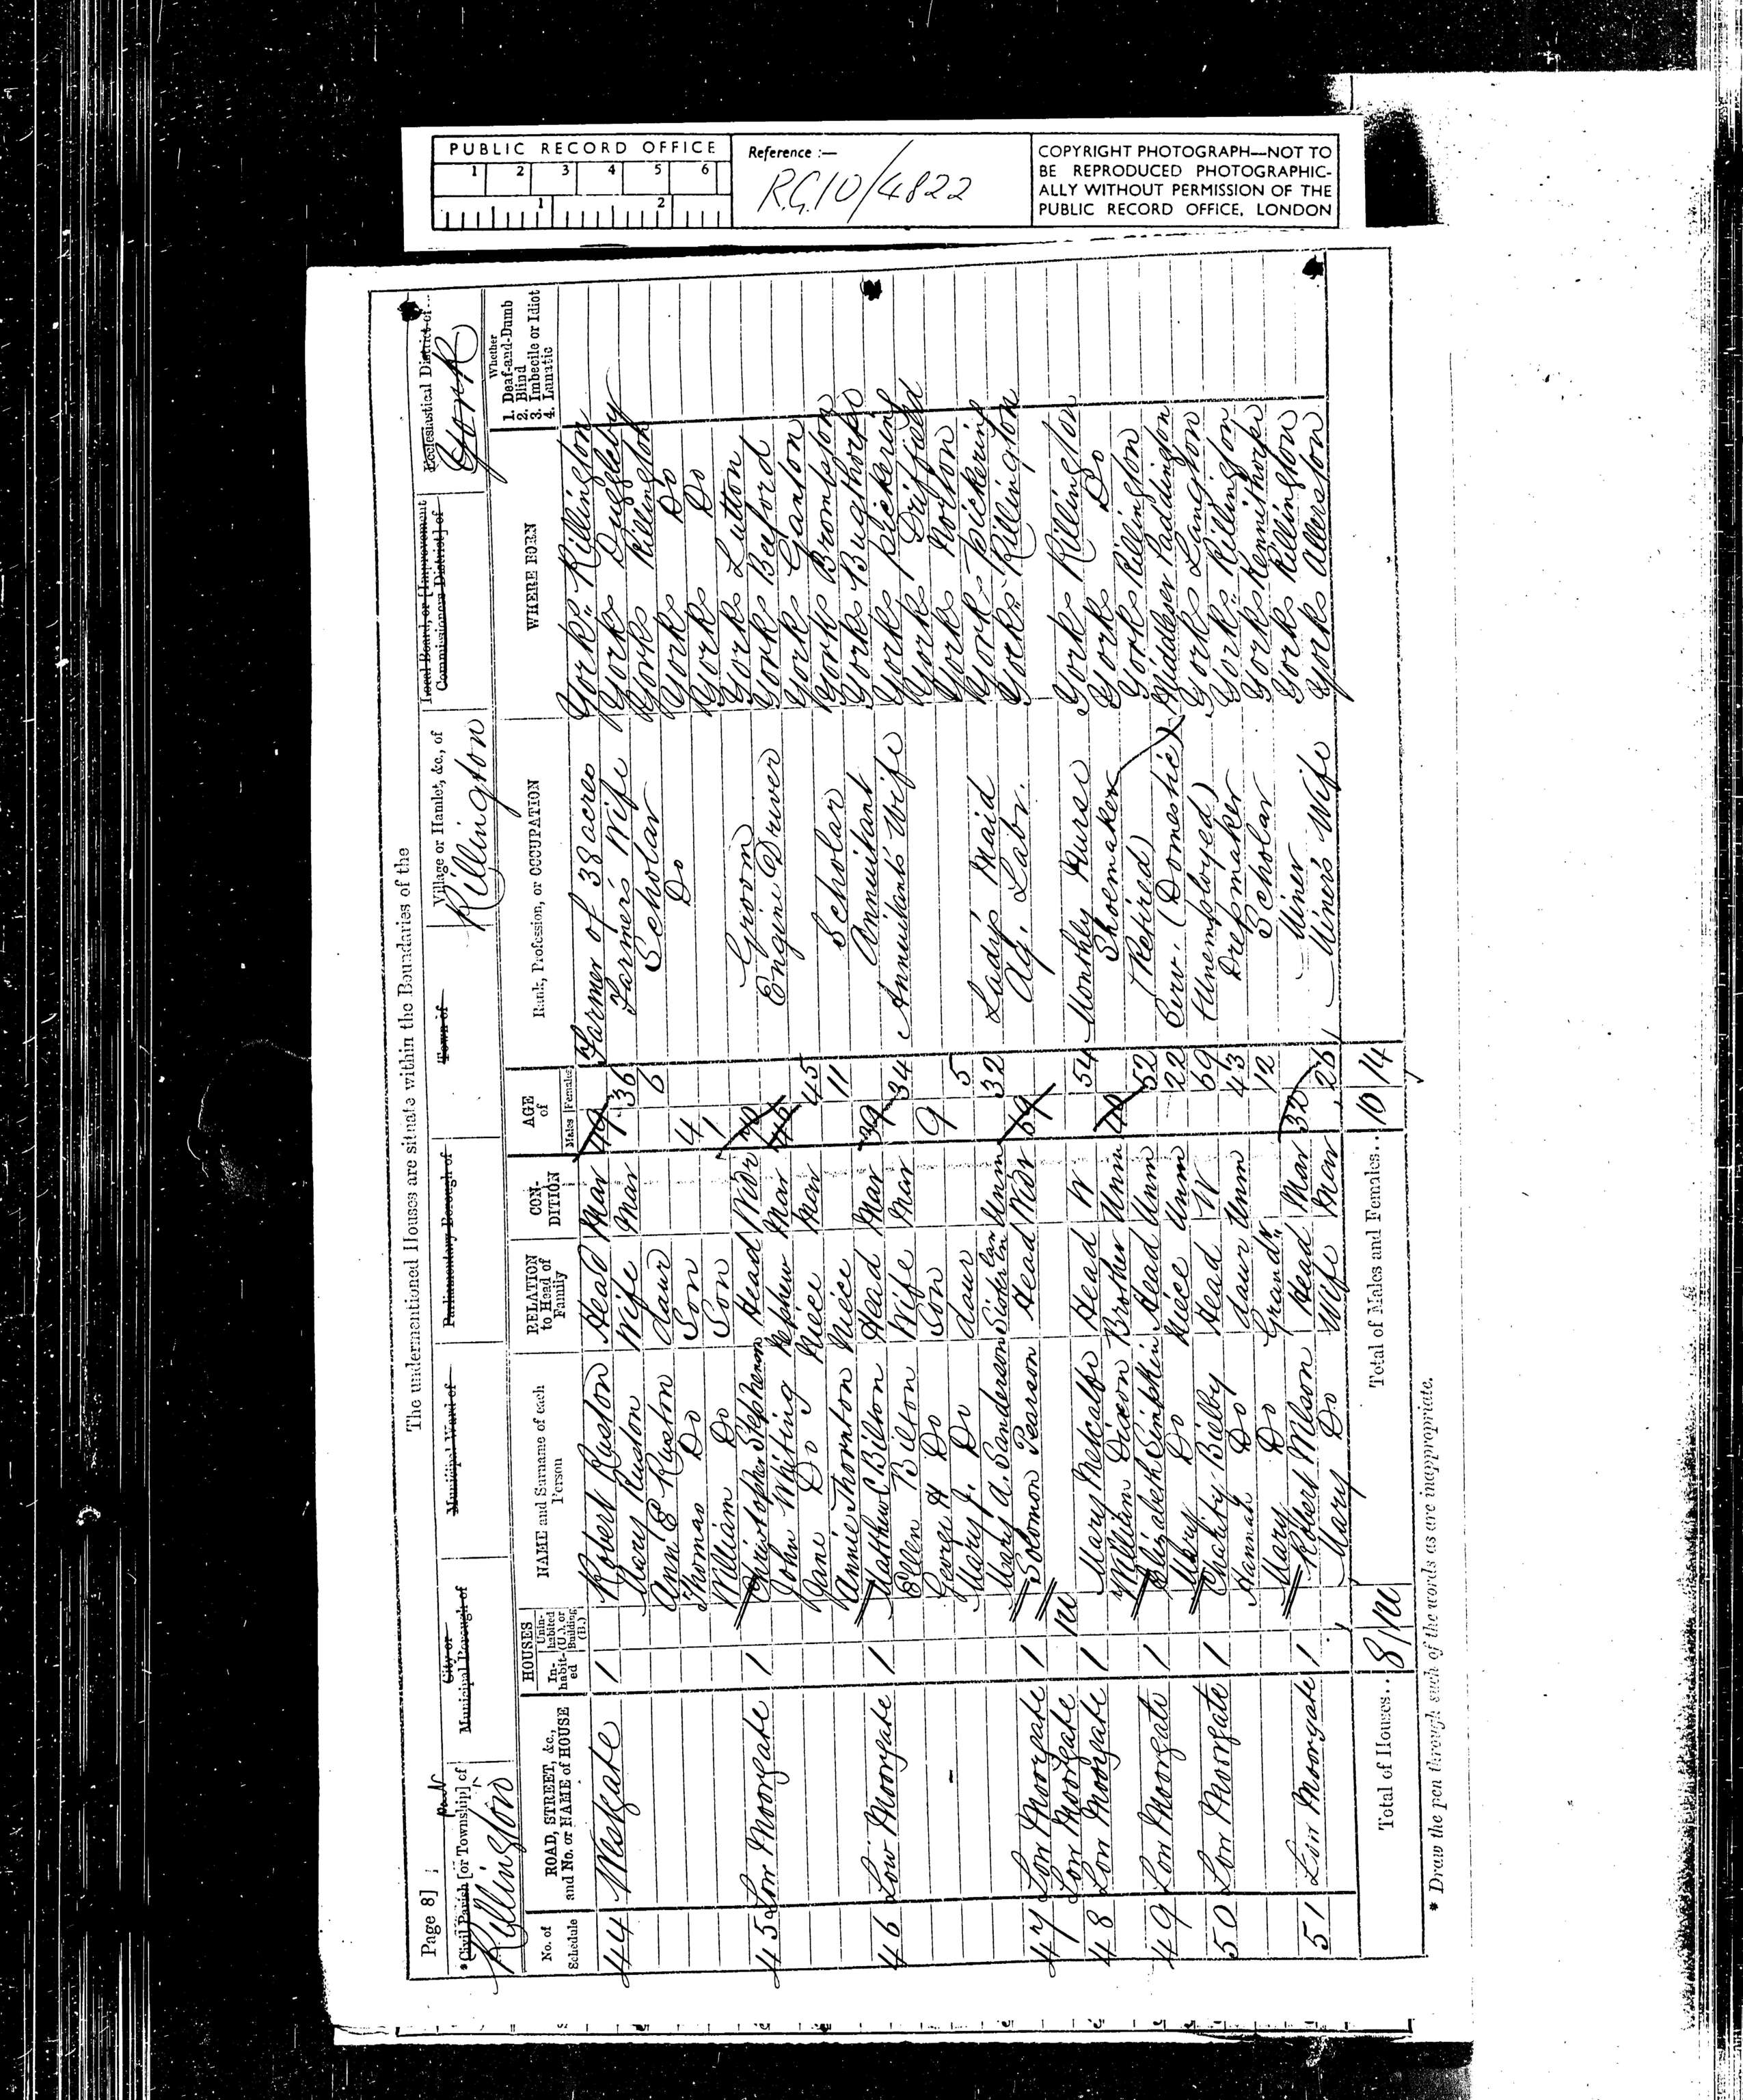 PUBLIC RECORD OFFICE
1 2 3 4 5 6
1 2
Reference :—
R.G.10/4822
COPYRIGHT PHOTOGRAPH—NOT TO
BE REPRODUCED PHOTOGRAPHIC-
ALLY WITHOUT PERMISSION OF THE
PUBLIC RECORD OFFICE, LONDON
Page 8]
The undermentioned Houses are situate within the Boundaries of the
*Civil Parish [or Township] of
Rillington
City or
Municipal Borough of
Municipal Ward of
Parliamentary Borough of
Town of
Village or Hamlet, &c., of
Rillington
Local Board, or [Improvement
Commissioners District] of
Ecclesiastical District of
York
No. of
Schedule
ROAD, STREET, &c.,
and No. or NAME of HOUSE
HOUSES
In-
habit-
ed
Unin-
habited
(U.), or
Building
(B.)
NAME and Surname of each
Person
RELATION
to Head of
Family
CON-
DITION
AGE
of
Males Females
Rank, Profession, or OCCUPATION
WHERE BORN
Whether
1. Deaf-and-Dumb
2. Blind
3. Imbecile or Idiot
4. Lunatic
44 Westgate 1 Robert Ruston Head Mar 49 Farmer of 38 acres Yorks Rillington
Mary Ruston Wife Mar 36 Farmer's Wife Yorks Duggleby
Ann E Ruston Daur 6 Scholar Yorks Rillington
Thomas Do Son 4 Do Yorks Do
William Do Son 1 Yorks Do
45 Low Moorgate 1 Christopher Stephenson Head Widr Groom Yorks Lutton
John Whiting Nephew Mar 46 Engine Driver Yorks Beeford
Jane Do Niece Mar 45 Yorks Ganton
Annie Thornton Niece 11 Scholar Yorks Brompton
46 Low Moorgate 1 Matthew C Bilton Head Mar 39 Annuitant Yorks Bugthorpe
Ellen Bilton Wife Mar 34 Annuitants Wife Yorks Pickering
George H Do Son 9 Yorks Driffield
Mary J. Do Daur 5 Yorks Norton
Mary A. Sanderson Sister in law Unm 32 Lady's Maid Yorks Pickering
47 Low Moorgate 1 Solomon Pearson Head Widr 69 Ag. Labr. Yorks Rillington
Low Moorgate 1U
48 Low Moorgate 1 Mary Metcalfe Head W 54 Monthly Nurse Yorks Rillington
William Dixon Brother Unm 40 Shoemaker Yorks Do
49 Low Moorgate 1 Elizabeth Simpkin Head Unm 52 (Retired) Yorks Rillington
Mary Do Niece Unm 22 Serv. (Domestic) Middlesex Paddington
50 Low Moorgate 1 Charity Bielby Head W 69 (Unemployed) Yorks Langton
Hannah Do daur Unm 43 Dressmaker Yorks Rillington
Mary Do Grandr 12 Scholar Yorks Kennithorpe
51 Low Moorgate 1 Robert Milson Head Mar 32 Miner Yorks Rillington
Mary Do Wife Mar 26 Miner's Wife Yorks Allerston
Total of Houses.. 8 1U
Total of Males and Females.. 10 14
* Draw the pen through such of the words as are inappropriate.